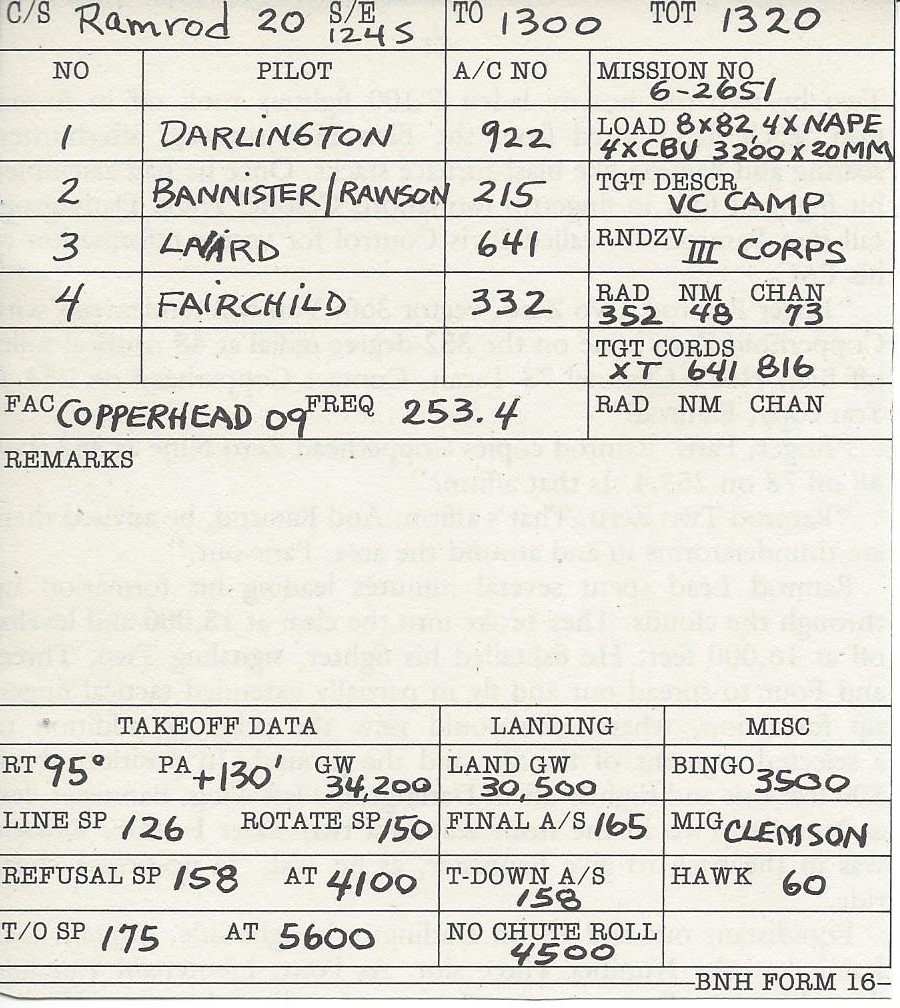 C/S Ramrod 20 S/E 1245 TO 1300 TOT 1320
NO PILOT A/C NO MISSION NO 6-2651
1 DARLINGTON 922 LOAD 8X82, 4X NAPE
4XCBU 3200X20MM
2 BANNISTER/RAWSON 215 TGT DESCR
VC CAMP
3 LAIRD 641 RNDZV III CORPS
4 FAIRCHILD 332 RAD NM CHAN
352 48 73
TGT CORDS
XT 641 816
FAC COPPERHEAD 09 FREQ 253.4 RAD NM CHAN
REMARKS
TAKEOFF DATA LANDING MISC
RT 95° PA +130 GW 34,200 LAND GW 30,500 BINGO 3500
LINE SP 126 ROTATE SP 150 FINAL A/S 165 MIG CLEMSON
REFUSAL SP 158 AT 4100 T-DOWN A/S 158 HAWK 60
T/O SP 175 AT 5600 NO CHUTE ROLL 4500
BNH FORM 16